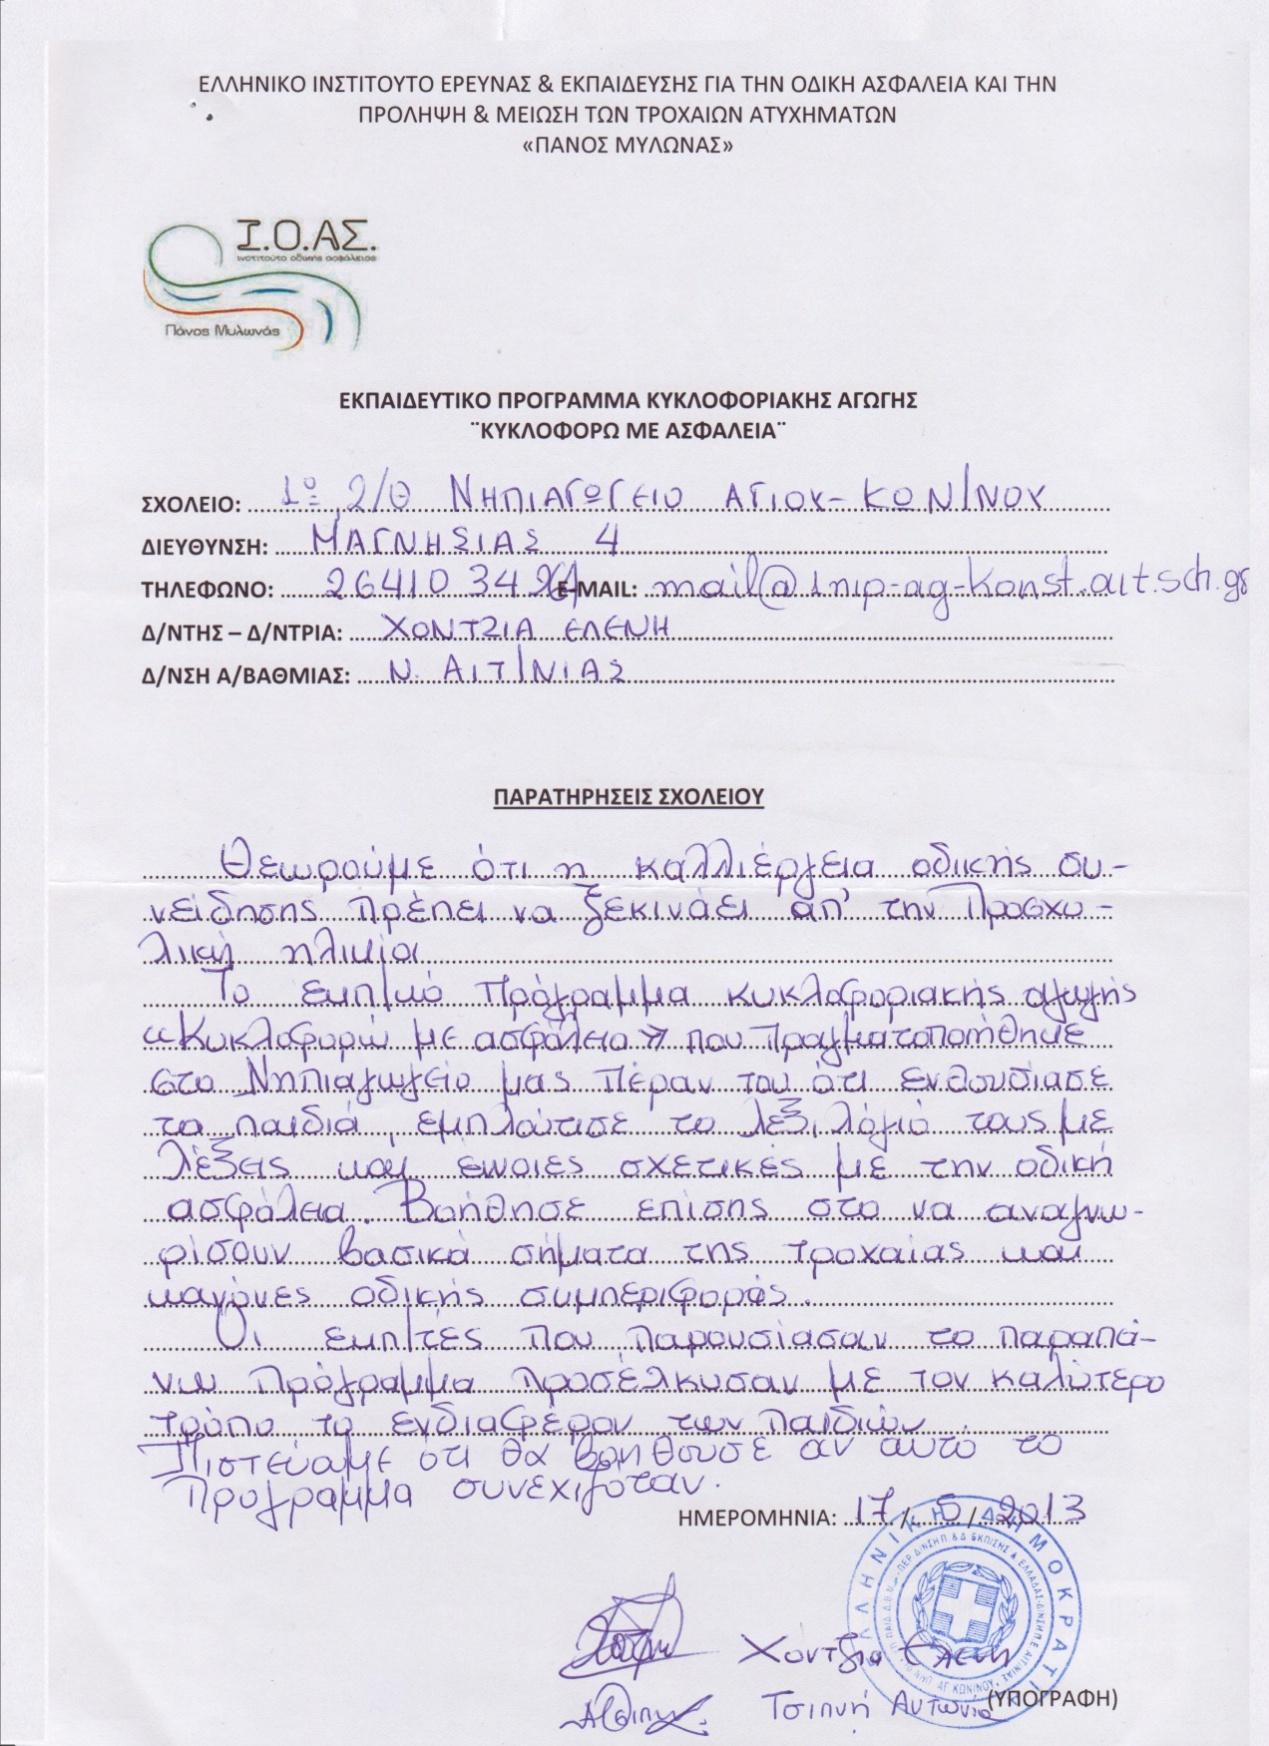 ΕΛΛΗΝΙΚΟ ΙΝΣΤΙΤΟΥΤΟ ΕΡΕΥΝΑΣ & ΕΚΠΑΙΔΕΥΣΗΣ ΓΙΑ ΤΗΝ ΟΔΙΚΗ ΑΣΦΑΛΕΙΑ ΚΑΙ ΤΗΝ
ΠΡΟΛΗΨΗ & ΜΕΙΩΣΗ ΤΩΝ ΤΡΟΧΑΙΩΝ ΑΤΥΧΗΜΑΤΩΝ
«ΠΑΝΟΣ ΜΥΛΩΝΑΣ»
Ι.Ο.ΑΣ.
ινστιτούτο οδικής ασφάλειας
Πάνος Μυλωνάς
ΕΚΠΑΙΔΕΥΤΙΚΟ ΠΡΟΓΡΑΜΜΑ ΚΥΚΛΟΦΟΡΙΑΚΗΣ ΑΓΩΓΗΣ
¨ΚΥΚΛΟΦΟΡΩ ΜΕ ΑΣΦΑΛΕΙΑ¨
ΣΧΟΛΕΙΟ: 1ο 2/Θ ΝΗΠΙΑΓΩΓΕΙΟ ΑΓΙΟΥ-ΚΩΝ/ΝΟΥ
ΔΙΕΥΘΥΝΣΗ: ΜΑΓΝΗΣΙΑΣ 4
ΤΗΛΕΦΩΝΟ: 26410 34 E-MAIL: mail@1nip-ag-konst.ait.sch.gr
Δ/ΝΤΗΣ – Δ/ΝΤΡΙΑ: ΧΟΝΤΖΙΑ ΕΛΕΝΗ
Δ/ΝΣΗ Α/ΒΑΘΜΙΑΣ: Ν. ΑΙΤ/ΝΙΑΣ
ΠΑΡΑΤΗΡΗΣΕΙΣ ΣΧΟΛΕΙΟΥ
Θεωρούμε ότι η καλλιέργεια οδικής συ-
νείδησης πρέπει να ξεκινάει απ' την Προσχο-
λική ηλικία
Το εκπ/κό Πρόγραμμα κυκλοφοριακής αγωγής
«Κυκλοφορώ με ασφάλεια» που Πραγματοποιήθηκε
στο Νηπιαγωγείο μας πέραν του ότι ενθουσίασε
τα παιδιά, εμπλούτισε το λεξιλόγιό τους με
λέξεις και έννοιες σχετικές με την οδική
ασφάλεια. Βοήθησε επίσης στο να αναγνω-
ρίσουν βασικά σήματα της τροχαίας και
κανόνες οδικής συμπεριφοράς.
Οι εκπ/τές που παρουσίασαν το παραπά-
νω πρόγραμμα προσέλκυσαν με τον καλύτερο
τρόπο το ενδιαφέρον των παιδιών.
Πιστεύαμε ότι θα βοηθούσε αν αυτό το
Πρόγραμμα συνεχιζόταν.
ΗΜΕΡΟΜΗΝΙΑ: 17 / 5 / 2013
ΕΛΛΗΝΙΚΗ ΔΗΜΟΚΡΑΤΙΑ
Χόντζια Ελένη
Τσιπνή Αντωνία (ΥΠΟΓΡΑΦΗ)